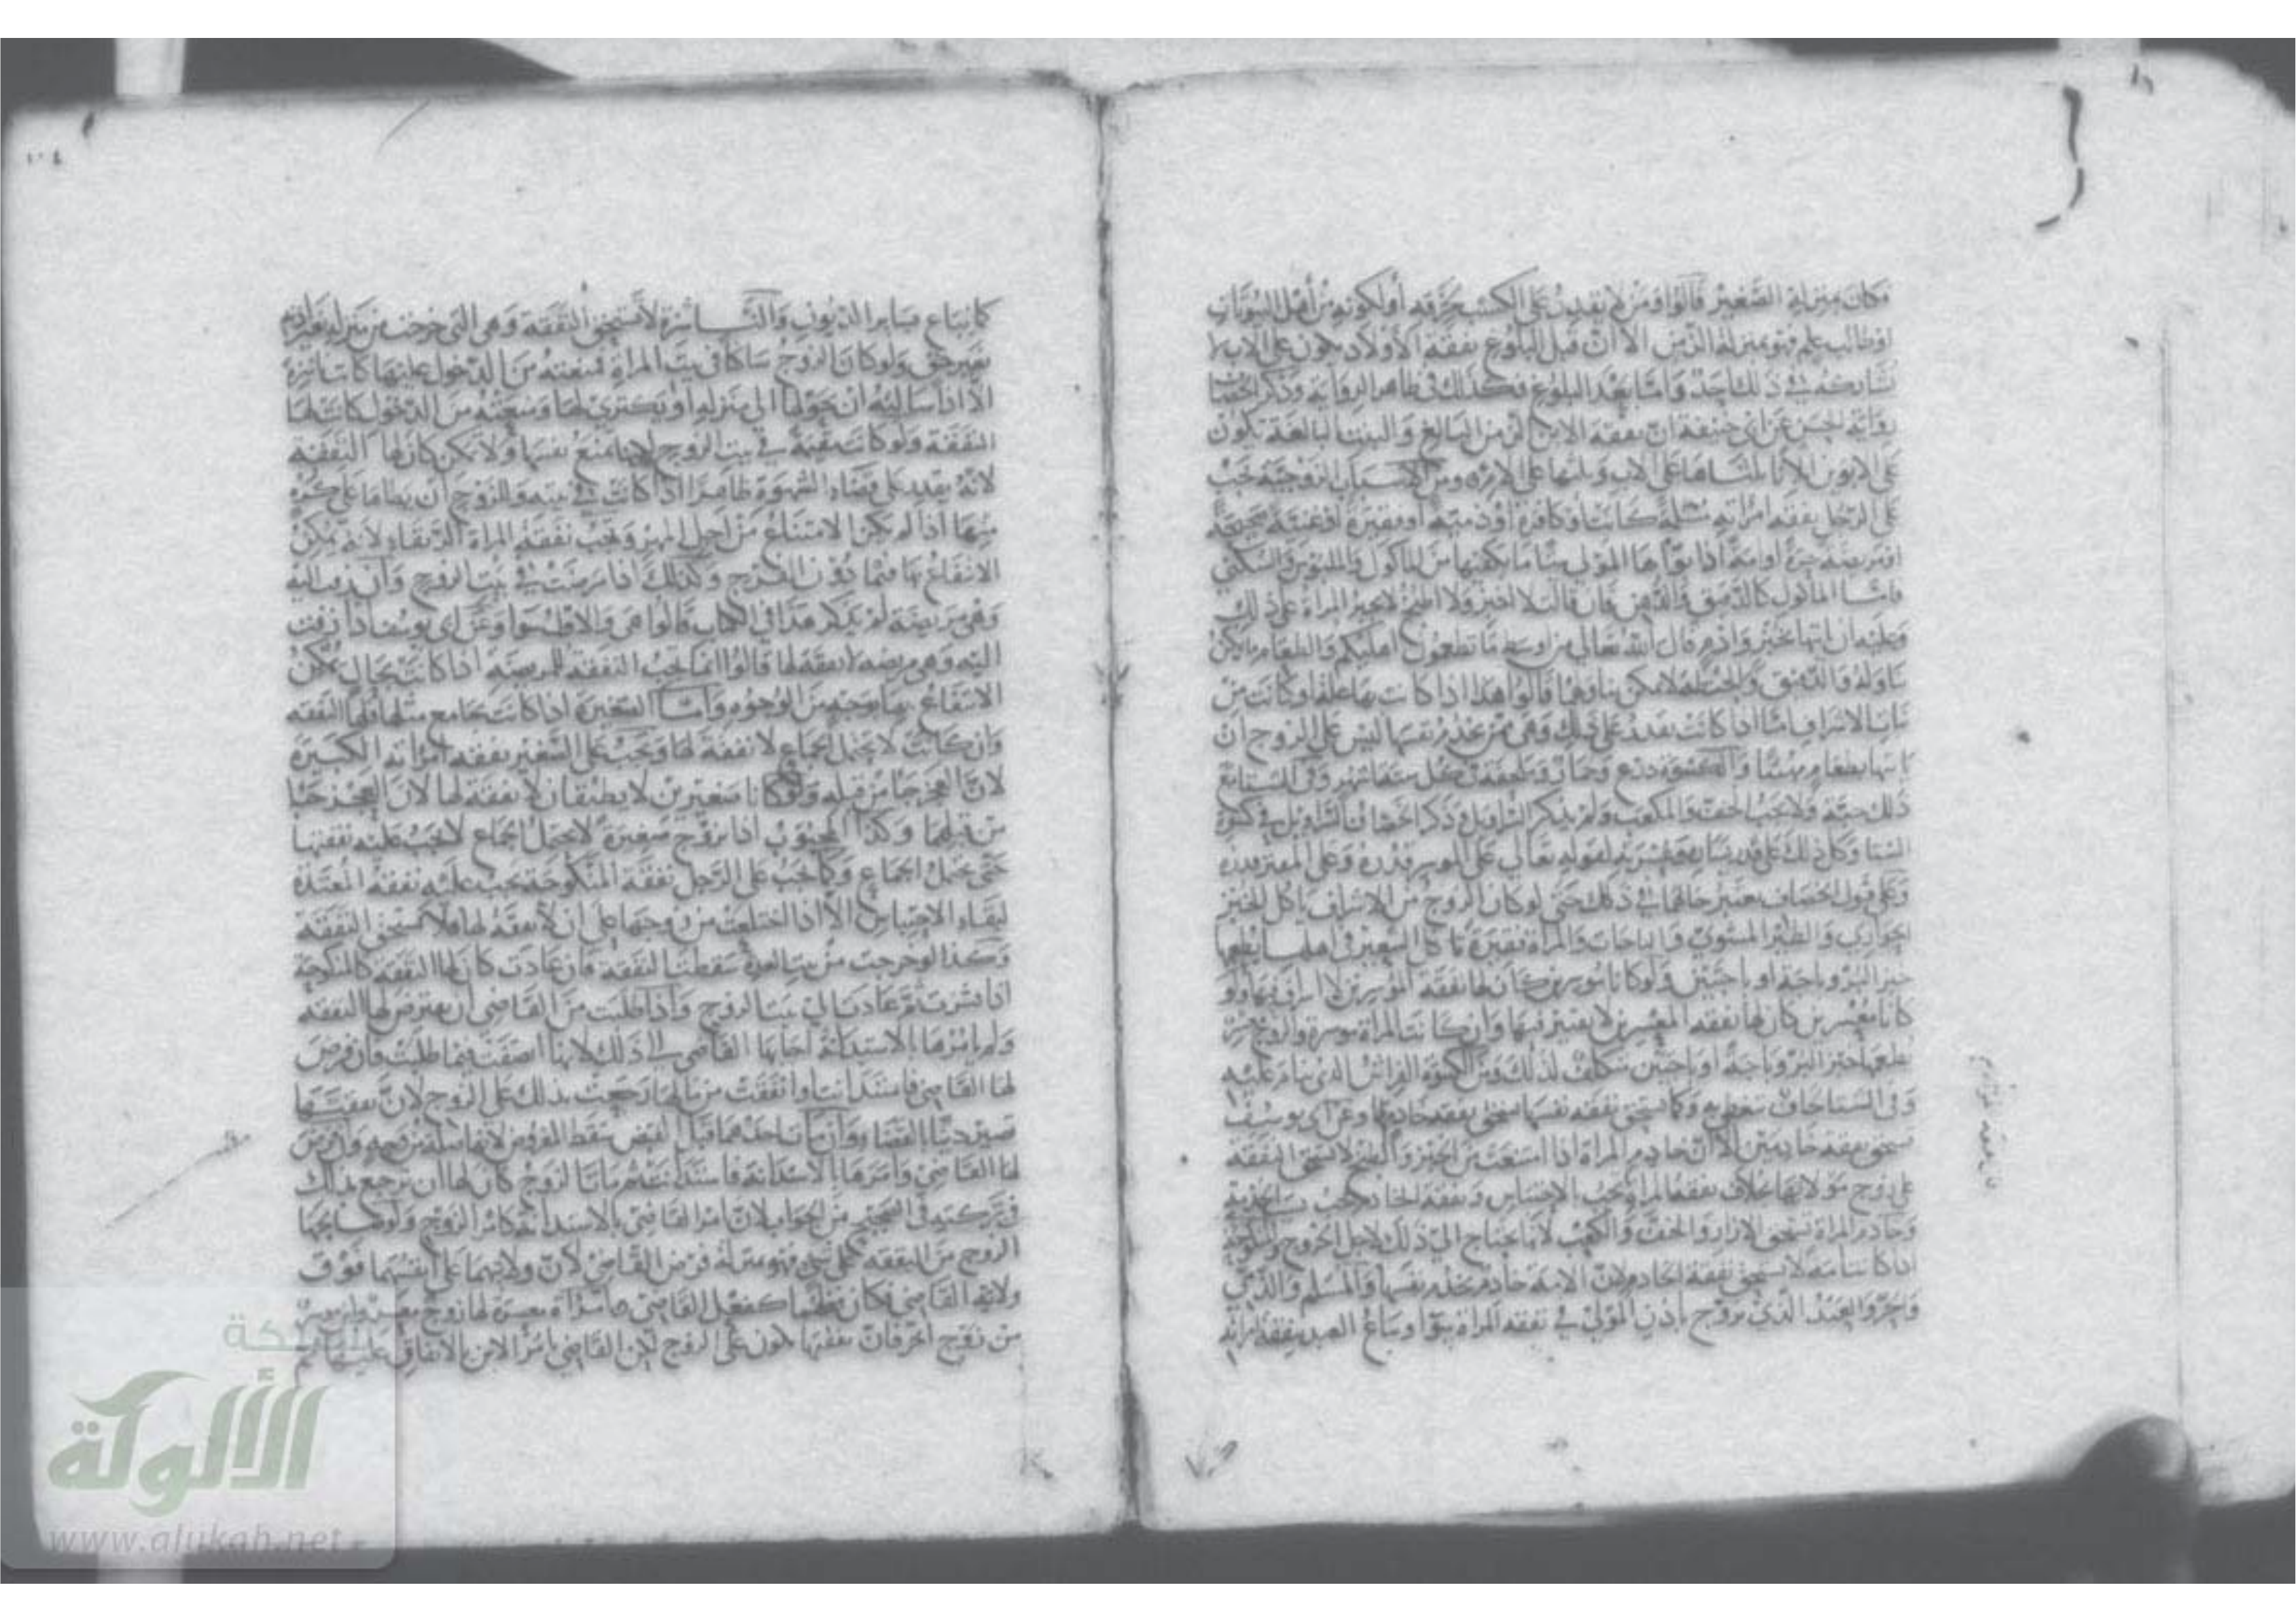 فكان بمنزلة الصغير قالوا ومن لا يقدر على الكسب لحرفه أو لكونه من أهل البيوتات
او طالب علم فهو بمنزلة الزمن الا أن قبل البلوغ نفقة الأولاد تكون على الاب لا
يشاركه في ذلك احد وأما بعد البلوغ فكذلك في ظاهر الرواية وذكر الخصاف
رواية الحسن عن أبي حنيفة ان نفقة الابن الزمن البالغ والبنت البالغة تكون
على الابوين الاثا ثلثاها على الاب وثلثها على الام ومن الاسباب الزوجية تجب
على الرجل نفقة امرأته مسلمة كانت او كافرة أو ذمية أو فقيرة أو غنية صحيحة
او مريضة حرة او امة اذا بوأها المولى بيتا ما يكفيها من المأكول والملبوس والسكنى
فاما المأكول كالدقيق والدهن فان قالت لا اخبز ولا اطبخ لا تجبر المرأة على ذلك
وعليه ان يأتيها بخبز وادم قال الله تعالى من اوسط ما تطعمون أهليكم والطعام ما يمكن
تناوله والدقيق والحنطة لا يمكن تناولهما قالوا هذا اذا كانت بها علة او كانت من
بنات الاشراف اما اذا كانت تقدر على ذلك وهي ممن تخدم نفسها ليس على الزوج ان
يأتيها بطعام مهيئا والكسوة درع وخمار وملحفة في كل ستة اشهر وفي الشتاء مع
ذلك جبة ولا تجب الخف والمكعب ولم يذكر السراويل وذكر الخصاف السراويل في كسوة
الشتا وكل ذلك على قدر يساره وعسرته لقوله تعالى على الموسع قدره وعلى المقتر قدره
وعلى قول الخصاف يعتبر حالهما في ذلك حتى لو كان الزوج من الاشراف يأكل الخبز
الحواري والطير المشوي والباجات والمرأة فقيرة تأكل الشعير في اهلها يطعمها
خبز البر وباجة او باجتين ولو كانا موسرين كان لها نفقة الموسرين لا اسراف فيها ولو
كانا معسرين كان لها نفقة المعسرين لا تقتير فيها وان كانت المرأة موسرة والزوج معسرا
يطعمها خبز البر وباجة او باجتين فيتكلف لذلك ومن الكسوة الفراش الذي ينام عليه
وفي الشتا لحاف تتغطى به وكما تستحق نفقة نفسها تستحق نفقة خادمها وعن أبي يوسف
تستحق نفقة خادمين الا ان خادم المرأة اذا امتنعت من الخبز والطبخ لا تستحق النفقة
على زوج مولاتها بخلاف نفقة المرأة تجب بالاحتباس ونفقة الخادم تجب بالخدمة
وخادم المرأة تستحق الازار والخف والمكعب لأنها تحتاج الى ذلك لاجل الخروج والمنكوحة
اذا كانت امة لا تستحق نفقة الخادم لأن الامة خادم تخدم نفسها والمسلم والذمي
والحر والعبد الذي تزوج باذن المولى في نفقة المرأة سوا ويباع العبد بنفقة امرأته
كما يباع بسائر الديون والناشزة لا تستحق النفقة وهي التي خرجت من منزل
بغير حق ولو كان الزوج ساكنا في بيت المرأة فمنعته من الدخول عليها كانت ناشزة
الا اذا سألته ان يحولها الى منزله أو يكتري لها ومنعته من الدخول كانت لها
النفقة ولو كانت مقيمة في بيت الزوج الا انها تمنع نفسها ولا تمكن كان لها النفقة
لانه يقدر على قضاء الشهوة ظاهرا اذا كانت في بيته وللزوج أن يطأها على كره
منها اذا لم يكن الامتناع من اجل المهر وتجب نفقة المرأة الرتقاء لانه يمكن
الانتفاع بها فيما دون الفرج وكذلك اذا مرضت في بيت الزوج وان زفت اليه
وهي مريضة لم يذكر هذا في الكتاب قالوا هي والاول سوا وعن أبي يوسف اذا زفت
اليه وهي مريضة لا نفقة لها قالوا انما تجب النفقة للمريضة اذا كانت بحال يمكن
الانتفاع بها بوجه من الوجوه وأما الصغيرة اذا كانت يجامع مثلها فلها النفقة
وان كانت لا تحتمل الجماع لا نفقة لها وتجب على الصغير نفقة امرأته الكبيرة
لان العجز جا من قبله ولو كانا صغيرين لا يطيقان لا نفقة لها لان العجز جا
من قبلهما وكذا المجبوب اذا تزوج صغيرة لا تحتمل الجماع لا تجب عليه نفقتها
حتى تحتمل الجماع وكما تجب على الرجل نفقة المنكوحة تجب عليه نفقة المعتدة
لبقاء الاحتباس الا اذا اختلعت من زوجها على ان لا نفقة لها فلا تستحق النفقة
وكذا لو خرجت من بيت العدة سقطت النفقة فان عادت كان لها النفقة كالمنكوحة
اذا نشزت ثم عادت الى بيت الزوج وإذا طلبت من القاضي أن يفرض لها النفقة
ولم يأمرها بالاستدانة اجابها القاضي الى ذلك لانها انصفت فيما طلبت فان فرض
لها القاضي فاستدانت او انفقت من مالها رجعت بذلك على الزوج لان نفقتها
تصير دينا بالقضا وان مات احدهما قبل القبض سقط المفروض لانها صلة من وجه ولو فرض
لها القاضي وأمرها بالاستدانة فاستدانت ثم مات الزوج كان لها ان ترجع بذلك
في تركته في الصحيح من الجواب لان أمر القاضي بالاستدانة كأمر الزوج ولو صالحها
الزوج من النفقة على شي فهو بمنزلة فرض القاضي لان ولايتهما على أنفسهما فوق
ولاية القاضي فكان فعلهما كفعل القاضي امرأة معسرة لها زوج معسر وابن موسر
من زوج آخر فان نفقتها تكون على الزوج لكن القاضي يأمر الابن بالانفاق عليها ثم
١٠٤
الألوكة
www.alukah.net